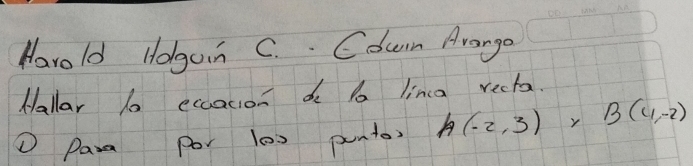 Harold Holguin C. - Edwin Arango
Hallar la ecuación de la linea recta.
① Pasa por los puntos A(-2,3) y B(4,-2)